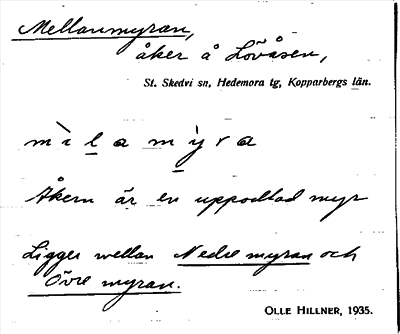 Mellanmyran,
åker å Lövåsen,
St. Skedvi sn, Hedemora tg, Kopparbergs län.
mìlamỳra
Åkern är en uppodlad myr
Ligger mellan Nedre myran och
Övre myran.
OLLE HILLNER, 1935.